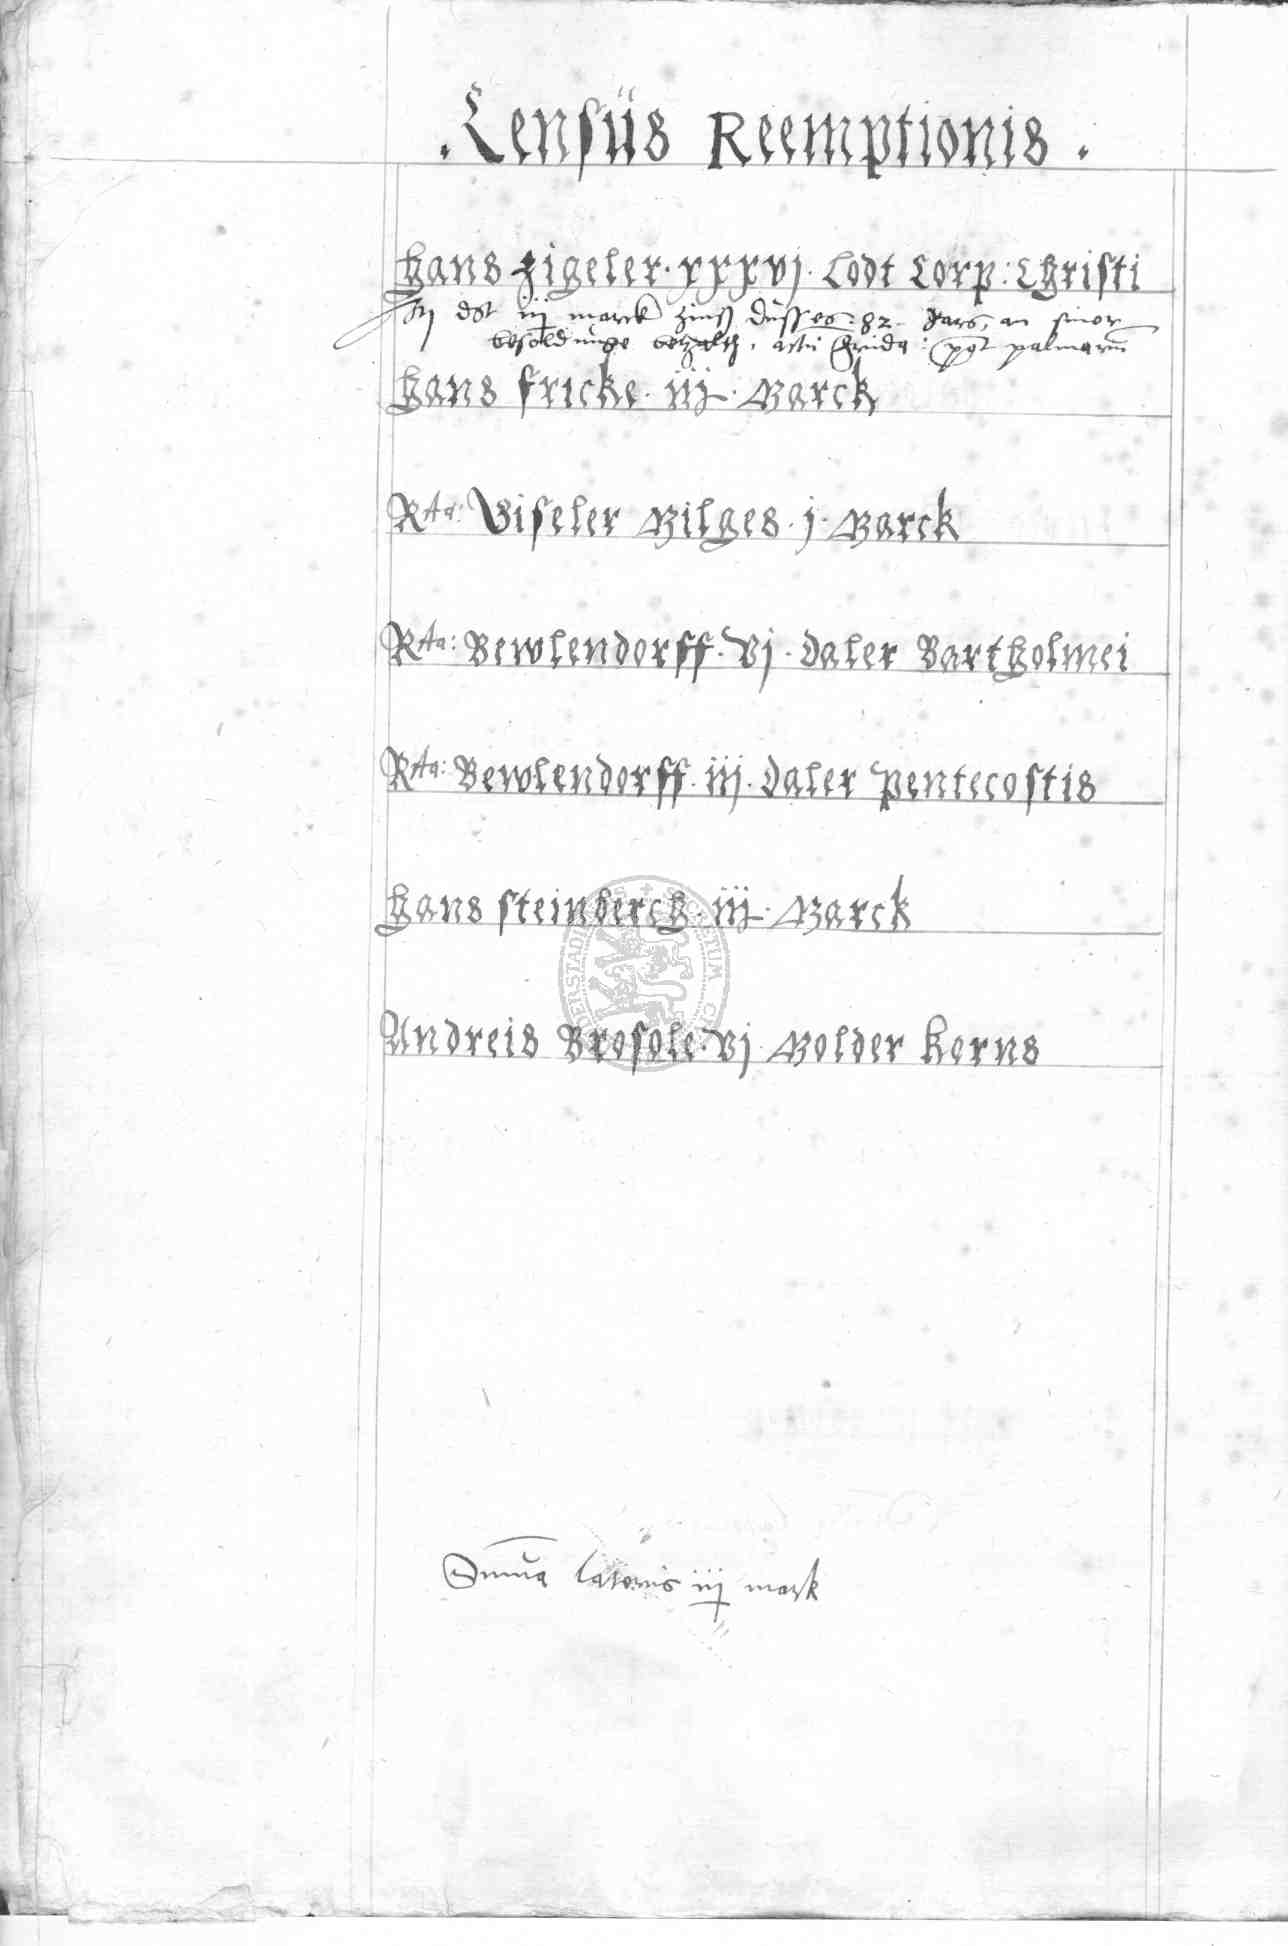 . Censüs Reemptionis .
Hans Zigeler . xxxvj . Lodt Corp: Christi
dst iij marck zinß düsses : 82 . Jars, an siner
besoldunge betzalth, actū palmarū
Hans Fricke . iij . Marck
Rta: Viseler Hilges . j . Marck
Rta: Bewlendorff . Vj . daler Bartholmei
Rta: Bewlendorff . iij . daler Pentecostis
Hans Steinberch . iij . Marck
Andreis Brosole . Vj . Molder Korns
Suma lateris iij mark